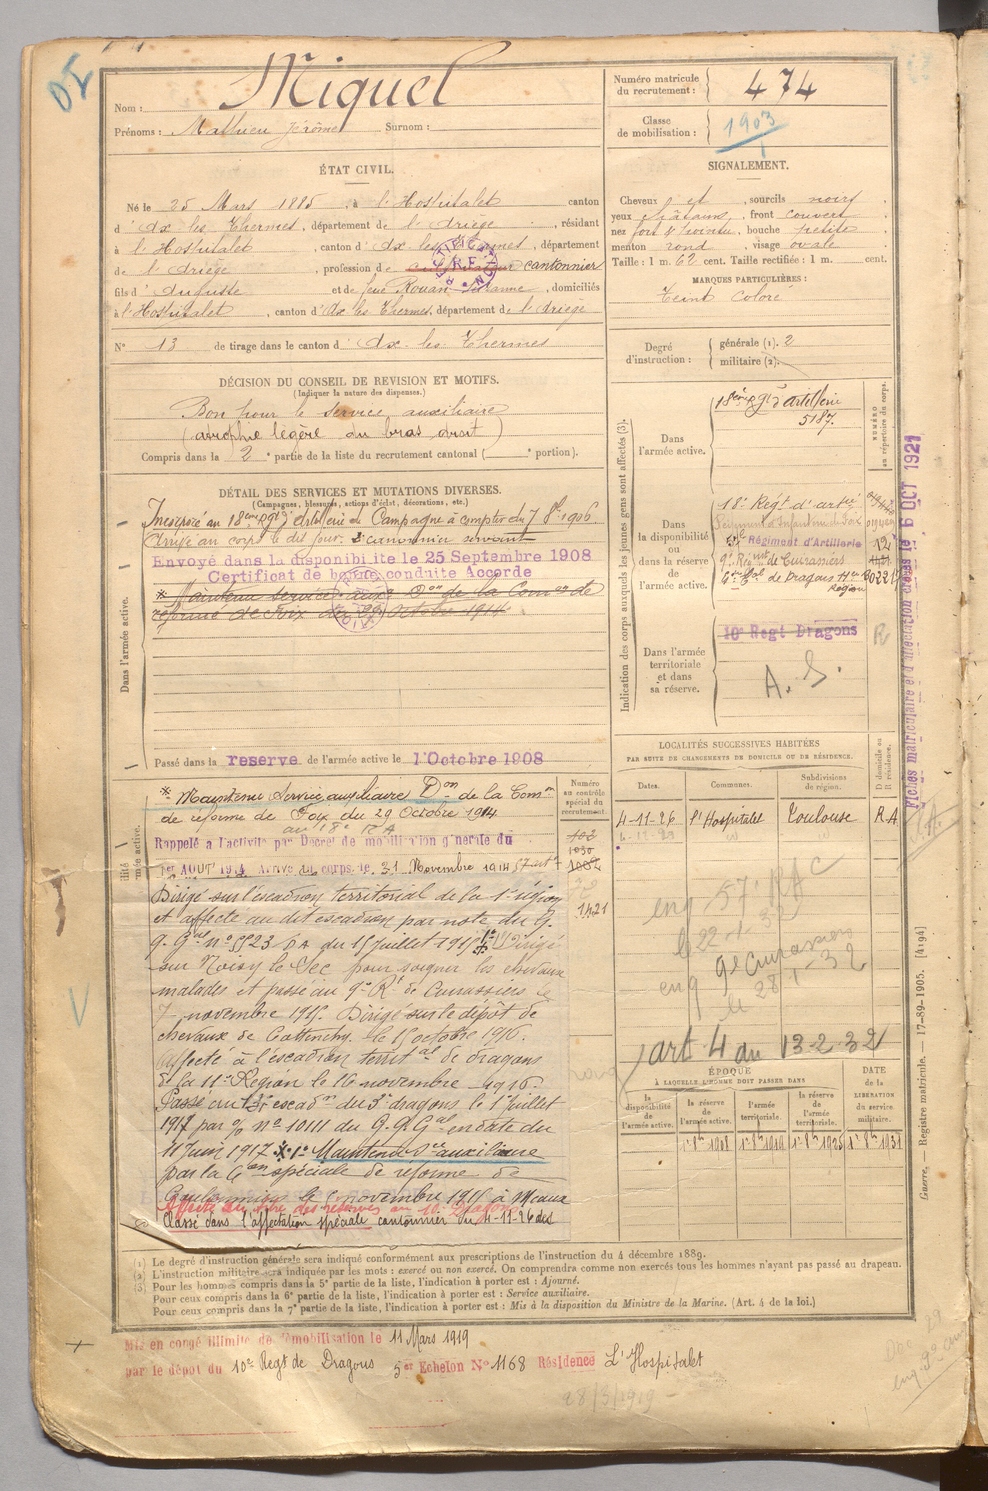 Nom : Miquel
Prénoms : Mathieu Jérôme Surnom :
ÉTAT CIVIL.
Né le 25 Mars 1885, à l'Hospitalet canton
d'Ax les Thermes, département de l'Ariège, résidant
à l'Hospitalet, canton d'Ax les Thermes, département
de l'Ariège, profession de cultivateur cantonnier
fils d'Auguste et de feue Rouan Suzanne, domiciliés
à l'Hospitalet, canton d'Ax les Thermes, département de l'Ariège
N° 13 de tirage dans le canton d'Ax les Thermes
DÉCISION DU CONSEIL DE REVISION ET MOTIFS.
(Indiquer la nature des dispenses.)
Bon pour le service auxiliaire
(atrophie légère du bras droit)
Compris dans la 2e partie de la liste du recrutement cantonal ( e portion).
DÉTAIL DES SERVICES ET MUTATIONS DIVERSES.
(Campagnes, blessures, actions d'éclat, décorations, etc.)
Dans l'armée active.
Incorporé au 18ème Rgt d'artillerie de Campagne à compter du 7 8bre 1906.
Arrivé au corps le dit jour. 2e canonnier servant
Envoyé dans la disponibilite le 25 Septembre 1908
Certificat de bonne conduite Accorde
* Maintenu Service aux. Don de la Comon de
réforme de Foix du 29 Octobre 1914
Passé dans la reserve de l'armée active le 1 Octobre 1908
* Maintenu Service auxiliaire Don de la Comon
de réforme de Foix du 29 Octobre 1914
au 18e RA
Rappelé à l'activité par Décret de mobilisation générale du
1er AOUT 1914 Arrivé au corps le 31 Novembre 1914 57 art
Dirigé sur l'escadron territorial de la 1e région
et affecté au dit escadron par note du G.
Q. Gal n° 5523 PA du 15 juillet 1915 Dirigé
sur Noisy le Sec pour soigner les chevaux
malades et passé au 9e Rt de Cuirassiers le
7 novembre 1915. Dirigé sur le dépôt de
chevaux de Cottenchy. le 15 octobre 1916.
Affecté à l'escadron territal de dragons
de la 11e Région le 16 novembre 1916.
Passé au escadn du 3e dragons le 1er Juillet
1917 par n° 10111 du G.Q.Gal en date du
11 juin 1917 * 1° Maintenu Sce auxiliaire
par la Con spéciale de réforme de
Coulommiers le novembre 1915 à Meaux
Affecté au titre des réserves au 10e Dragons
Classé dans l'affectation spéciale cantonnier du 4-11-26 des
Numéro
au contrôle
spécial du
recrutement.
103
1030
1002
1421
Numéro matricule
du recrutement : 474
Classe
de mobilisation : 1903
SIGNALEMENT.
Cheveux et sourcils noirs
yeux châtains, front couvert
nez fort & pointu, bouche petite
menton rond, visage ovale
Taille : 1 m. 62 cent. Taille rectifiée : 1 m. cent.
MARQUES PARTICULIÈRES :
Teint coloré
Degré
d'instruction :
générale (1). 2
militaire (2).
Indication des corps auxquels les jeunes gens sont affectés (3).
NUMÉRO
au répertoire du corps.
Dans
l'armée active.
18ème Rgt d'artillerie
5187.
Dans
la disponibilité
ou
dans la réserve
de
l'armée active.
18e Régt d'artie
Régiment d'Infanterie de Foix
Régiment d'Artillerie 12
9e Régimt de Cuirassiers 1421
de Dragons
Région
Dans l'armée
territoriale
et dans
sa réserve.
10e Regt Dragons
R
A. S.
Fiches matriculaire et d'affectation créées le 6 OCT 1921
LOCALITÉS SUCCESSIVES HABITÉES
PAR SUITE DE CHANGEMENTS DE DOMICILE OU DE RÉSIDENCE.
D domicile ou
R résidence.
Dates. Communes. Subdivisions
de région.
4-11-26 l'Hospitalet Toulouse RA
eng 57e RAC
le 22-1-32
eng 9e Cuirassiers
le 28-1-32
art 4 du 13-2-32
ÉPOQUE
À LAQUELLE L'HOMME DOIT PASSER DANS
DATE
de la
LIBÉRATION
du service
militaire.
la
disponibilité
de
l'armée active.
la réserve
de
l'armée active.
l'armée
territoriale.
la réserve
de l'armée
territoriale.
1r 8bre 1908 1r 8bre 1919 1r 8bre 1925 1r 8bre 1931
Guerre. Registre matricule. — 17-89-1905. [4194]
(1) Le degré d'instruction générale sera indiqué conformément aux prescriptions de l'instruction du 4 décembre 1889.
(2) L'instruction militaire sera indiquée par les mots : exercé ou non exercé. On comprendra comme non exercés tous les hommes n'ayant pas passé au drapeau.
(3) Pour les hommes compris dans la 5e partie de la liste, l'indication à porter est : Ajourné.
Pour ceux compris dans la 6e partie de la liste, l'indication à porter est : Service auxiliaire.
Pour ceux compris dans la 7e partie de la liste, l'indication à porter est : Mis à la disposition du Ministre de la Marine. (Art. 4 de la loi.)
Mis en congé illimité de démobilisation le 11 Mars 1919
par le dépôt du 10e Regt de Dragons 5e Echelon N° 1168 Résidence L'Hospitalet
28/3/1919